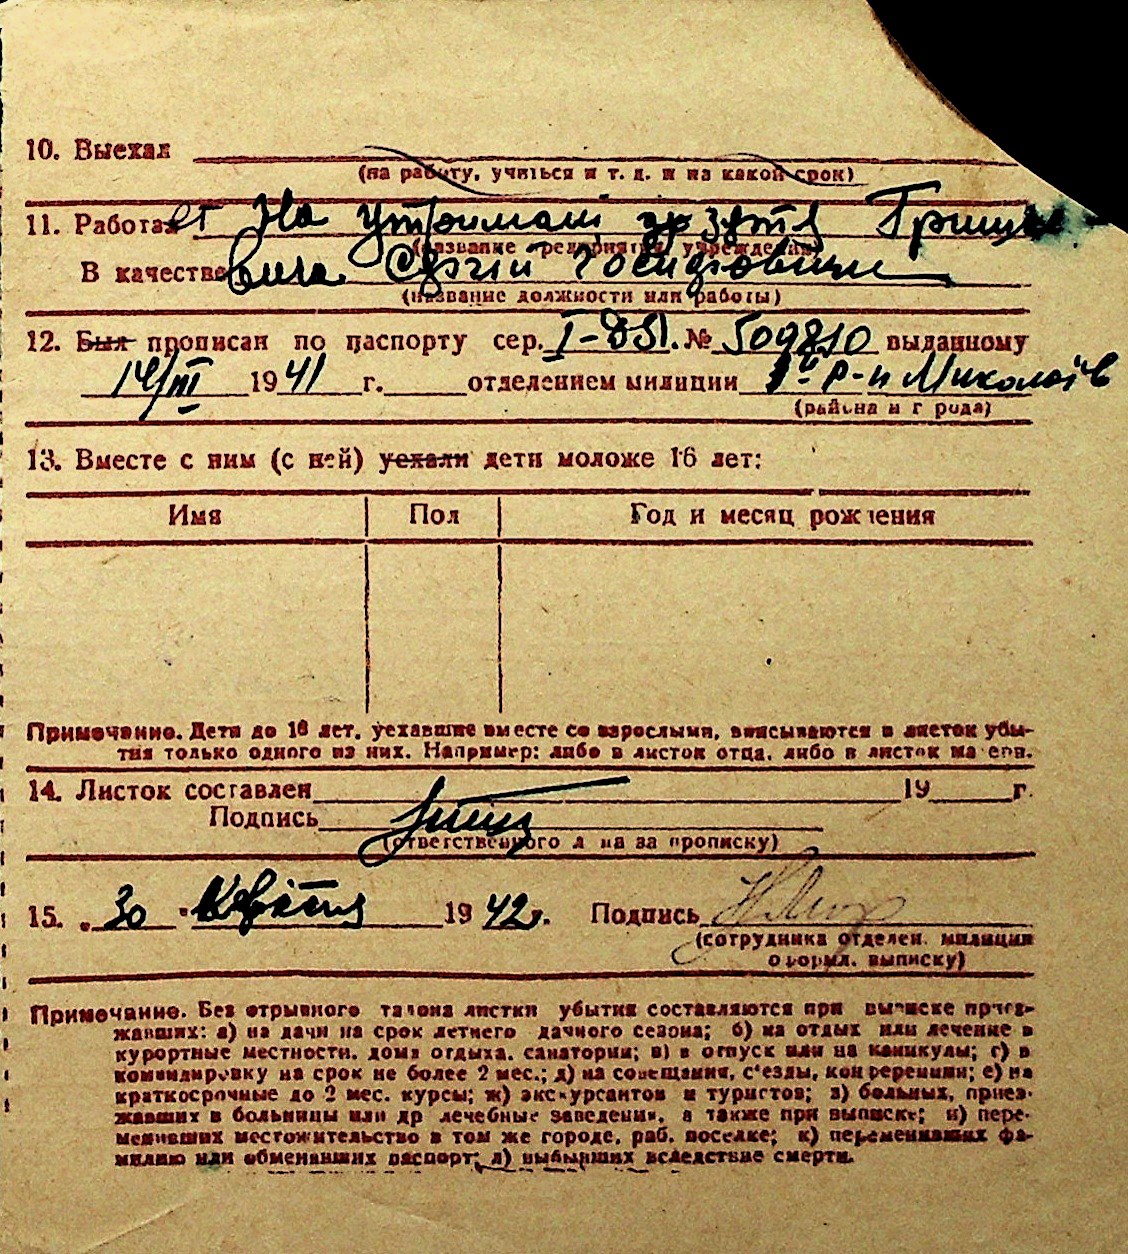 10. Выехал
(на работу, учиться и т. д. и на какой срок)
11. Работает На утриманні
(название предприятия, учреждения)
В качестве
(название должности или работы)
12. Был прописан по паспорту сер. № 509810 выданному
14/III 1941 г. отделением милиции р-н Миколаїв
(района и города)
13. Вместе с ним (с ней) уехали дети моложе 16 лет:
Имя Пол Год и месяц рождения
Примечание. Дети до 16 лет, уехавшие вместе со взрослыми, вписываются в листок убы-
тия только одного из них. Например: либо в листок отца, либо в листок матери.
14. Листок составлен 19 г.
Подпись
(ответственного лица за прописку)
15. „30" Квітня 1942 г. Подпись
(сотрудника отделен. милиции
оформл. выписку)
Примечание. Без отрывного талона листки убытия составляются при выписке приез-
жавших: а) на дачи на срок летнего дачного сезона; б) на отдых или лечение в
курортные местности, дома отдыха, санатории; в) в отпуск или на каникулы; г) в
командировку на срок не более 2 мес.; д) на совещания, съезды, конференции; е) на
краткосрочные до 2 мес. курсы; ж) экскурсантов и туристов; з) больных, приез-
жавших в больницы или др лечебные заведения, а также при выписке; и) пере-
менивших местожительство в том же городе, раб. поселке; к) переменивших фа-
милию или обменивших паспорт; л) выбывших вследствие смерти.